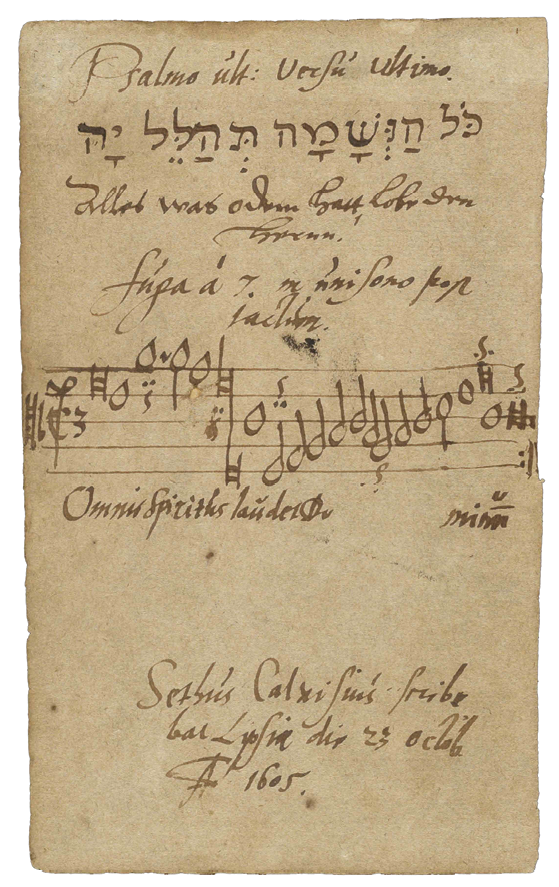 Psalmo ult: Versu ultimo.
כֹּל הַנְּשָׁמָה תְּהַלֵּל יָהּ
Alles was odem hatt, lobe den
herrn.
fuga á 7. in unisono post
tactum.
3
Omnis spiritus laudet Do minū
Sethus Calvisius scribe
bat Lipsiæ die 23 octob
Aº 1605.